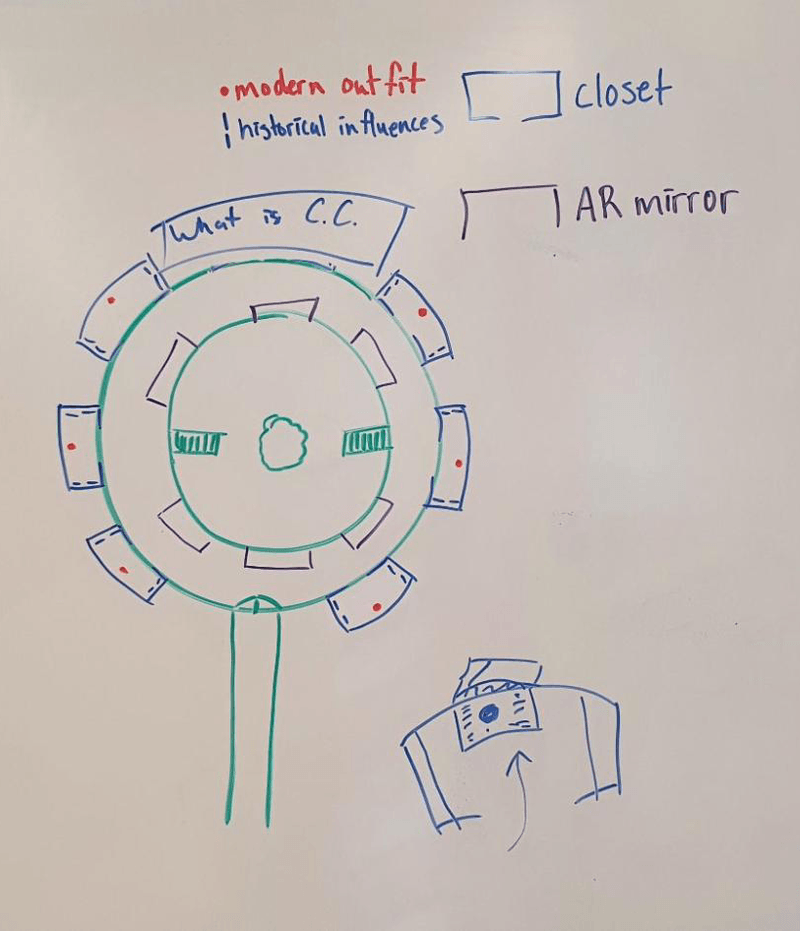 modern outfit
historical influences
closet
AR mirror
What is C.C.